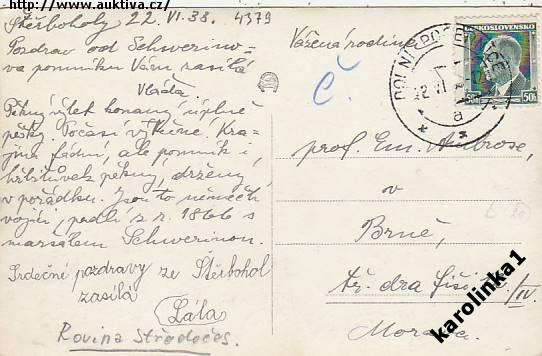 http://www.auktiva.cz/
Štěrboholy 22. VI. 38. 4379
Pozdrav od Schwerino-
va pomníku Vám zasílá
Vláďa.
Pěkný výlet konaný úplně
pěšky. Počasí výtečné. Kra-
jina fádní, ale pomník i
hřbitůvek pěkný, držený
v pořádku. Jsou to němečtí
vojíni, padlí z r. 1866 s
maršálem Schwerinom.
Srdečné pozdravy ze Štěrbohol
zasílá
Lála
Rovina Středočes.
Vážená rodino
Č.
ČESKOSLOVENSKO
50h
DOLNÍ PO
a
prof. Em. Ambrose,
v
Brně,
tř. dra
IV.
Morava
karolinka1